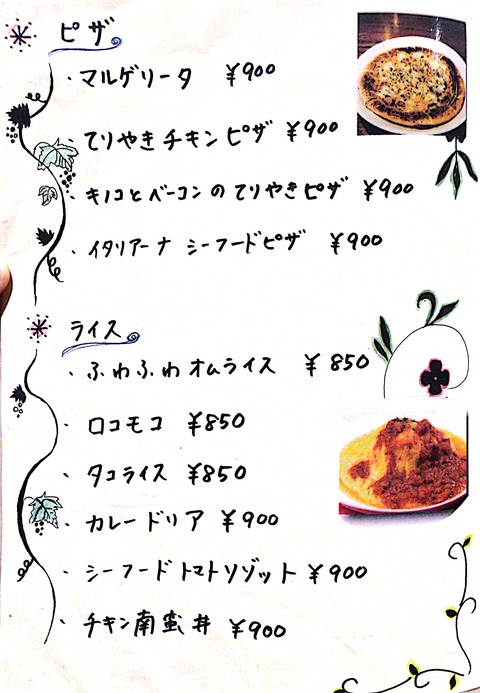 ピザ
・マルゲリータ ¥900
・てりやきチキンピザ ¥900
・キノコとベーコンのてりやきピザ ¥900
・イタリアーナ シーフードピザ ¥900
ライス
・ふわふわオムライス ¥850
・ロコモコ ¥850
・タコライス ¥850
・カレードリア ¥900
・シーフードトマトリゾット ¥900
・チキン南蛮丼 ¥900